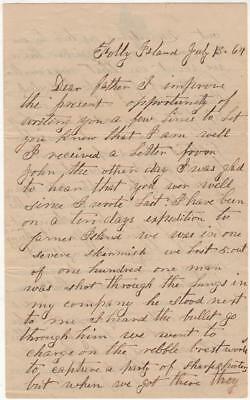 Folly Island July 18 - 64
Dear father I improve
the present opportunity of
writing you a few lines to let
you know that I am well
I received a letter from
John, the other day I was glad
to hear that you wer well
since I wrote last I have been
on a ten days expedition to
James Island we was in one
severe skirmish we lost 5 out
of one hundred one man
was shot through the lungs in
my company he stood next
to me I heard the bullet go
through him we went to
charge on the rebble brestworks
to capture a party of sharpshooters
but when we got there they